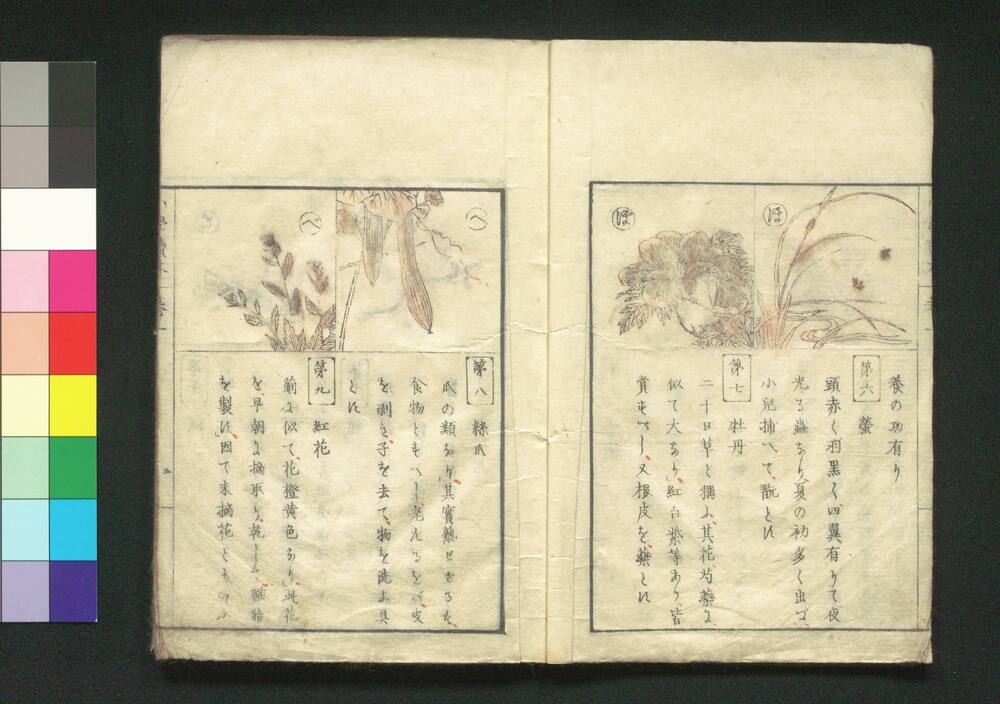 ほ
ぼ
養の功有り
第六 螢
頭赤く羽黒く四翼有りて夜
光る蟲なり、夏の初多く出づ、
小兒捕へて、翫とす
第七 牡丹
二十日草と稱ふ、其花芍藥に
似て大なり、紅白紫等あり、皆
賞すべし、又根皮を、藥とす
へ
べ
第八 絲瓜
瓜の類なり、其實熟せざるを、
食物とすべし、老たるをば、皮
を剥ぎ、子を去て、物を洗ふ具
とす
第九 紅花
薊に似て、花橙黄色なり、此花
を、早朝に摘取り、乾して、臙脂
を製す、因て末摘花ともいふ